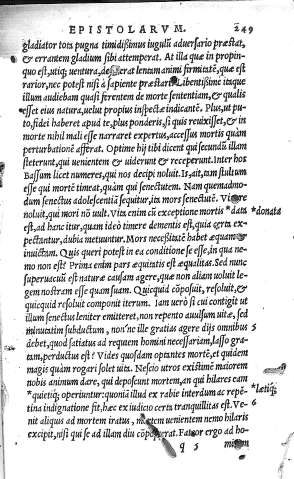 EPISTOLARVM. 249
gladiator tota pugna timidissimus iugulũ aduersario præstat,
& errantem gladium sibi attemperat. At illa quæ in propin
quo est, utiq; uentura, desiderat lentam animi firmitatẽ, quæ est
rarior, nec potest nisi à sapiente præstari. Libentissime itaque
illum audiebam quasi ferentem de morte sententiam, & qualis
esset eius natura, uelut propius inspectæ indicantẽ. Plus, ut pu-
to, fidei haberet apud te, plus ponderis, si quis reuixisset, & in
morte nihil mali esse narraret expertus, accessus mortis quàm
perturbationẽ afferat. Optime hi tibi dicent qui secundũ illam
steterunt, qui uenientem & uiderunt & receperunt. Inter hos
Bassum licet numeres, qui nos decipi noluit. Is, ait, tam stultum
esse qui mortẽ timeat, quàm qui senectutem. Nam quemadmo-
dum senectus adolescentiã sequitur, ita mors senectutẽ. Viuere
noluit, qui mori nõ uult. Vita enim cũ exceptione mortis *data *donata
est, ad hanc itur, quam ideo timere dementis est, quia certa ex-
pectantur, dubia metuuntur. Mors necessitatẽ habet æquam &
inuictam. Quis queri potest in ea conditione se esse, in qua ne-
mo non est? Prima enim pars æquitatis est æqualitas. Sed nunc
superuacuũ est naturæ causam agere, quæ non aliam uoluit le-
gem nostram esse quam suam. Quicquid cõposuit, resoluit, &
quicquid resoluit componit iterum. Iam uerò si cui contigit ut
illum senectus leniter emitteret, non repento auulsum uitæ, sed
minutatim subductum, non'ne ille gratias agere dijs omnibus 5
debet, quod satiatus ad requiem homini necessariam, lasso gra-
tam, perductus est? Vides quosdam optantes mortẽ, et quidem
magis quàm rogari solet uita. Nescio utros existimẽ maiorem
nobis animum dare, qui deposcunt mortem, an qui hilares eam
*quietiq; operiuntur: quoniã illud ex rabie interdum ac repẽ- *lætiq;
tina indignatione fit, hæc ex iudicio certa tranquillitas est. Ve- 6
nit aliquis ad mortem iratus, mortem uenientem nemo hilaris
excipit, nisi qui se ad illam diu cõposuerat. Fateor ergo ad ho-
q 5